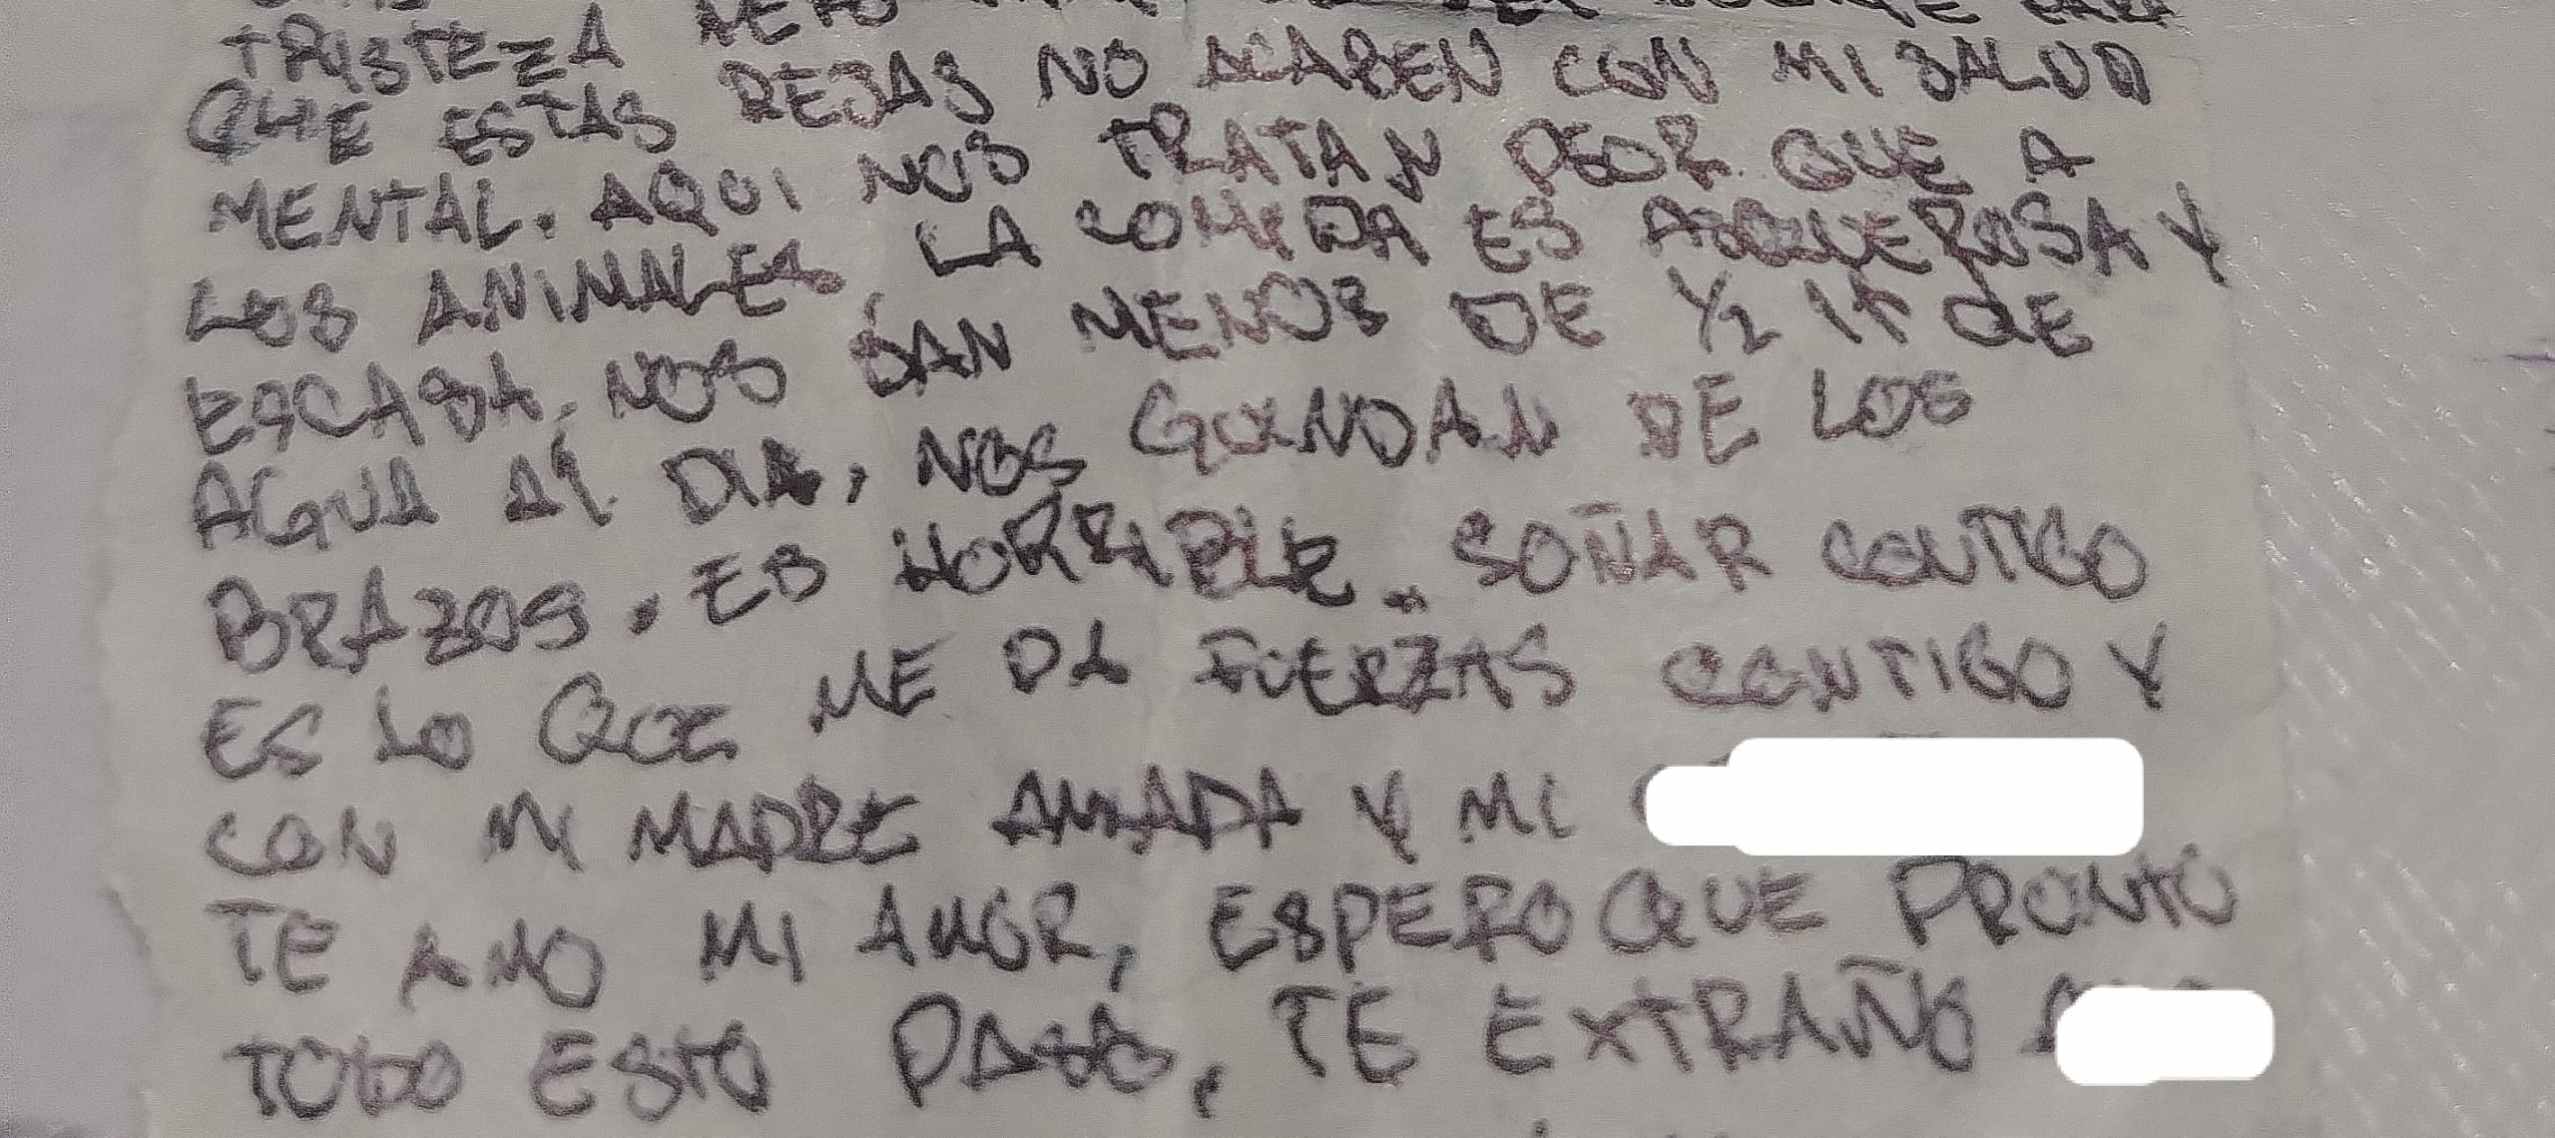 TRISTEZA
QUE ESTAS REJAS NO ACABEN CON MI SALUD
MENTAL. AQUI NOS TRATAN PEOR QUE A
LOS ANIMALES, LA COMIDA ES ASQUEROSA Y
ESCASA, NOS DAN MENOS DE 1/2 lt DE
AGUA AL DIA, NOS GUINDAN DE LOS
BRAZOS. ES HORRIBLE. SOÑAR CONTIGO
ES LO QUE ME DA FUERZAS CONTIGO Y
CON MI MADRE AMADA Y MI
TE AMO MI AMOR, ESPERO QUE PRONTO
TODO ESTO PASE, TE EXTRAÑO